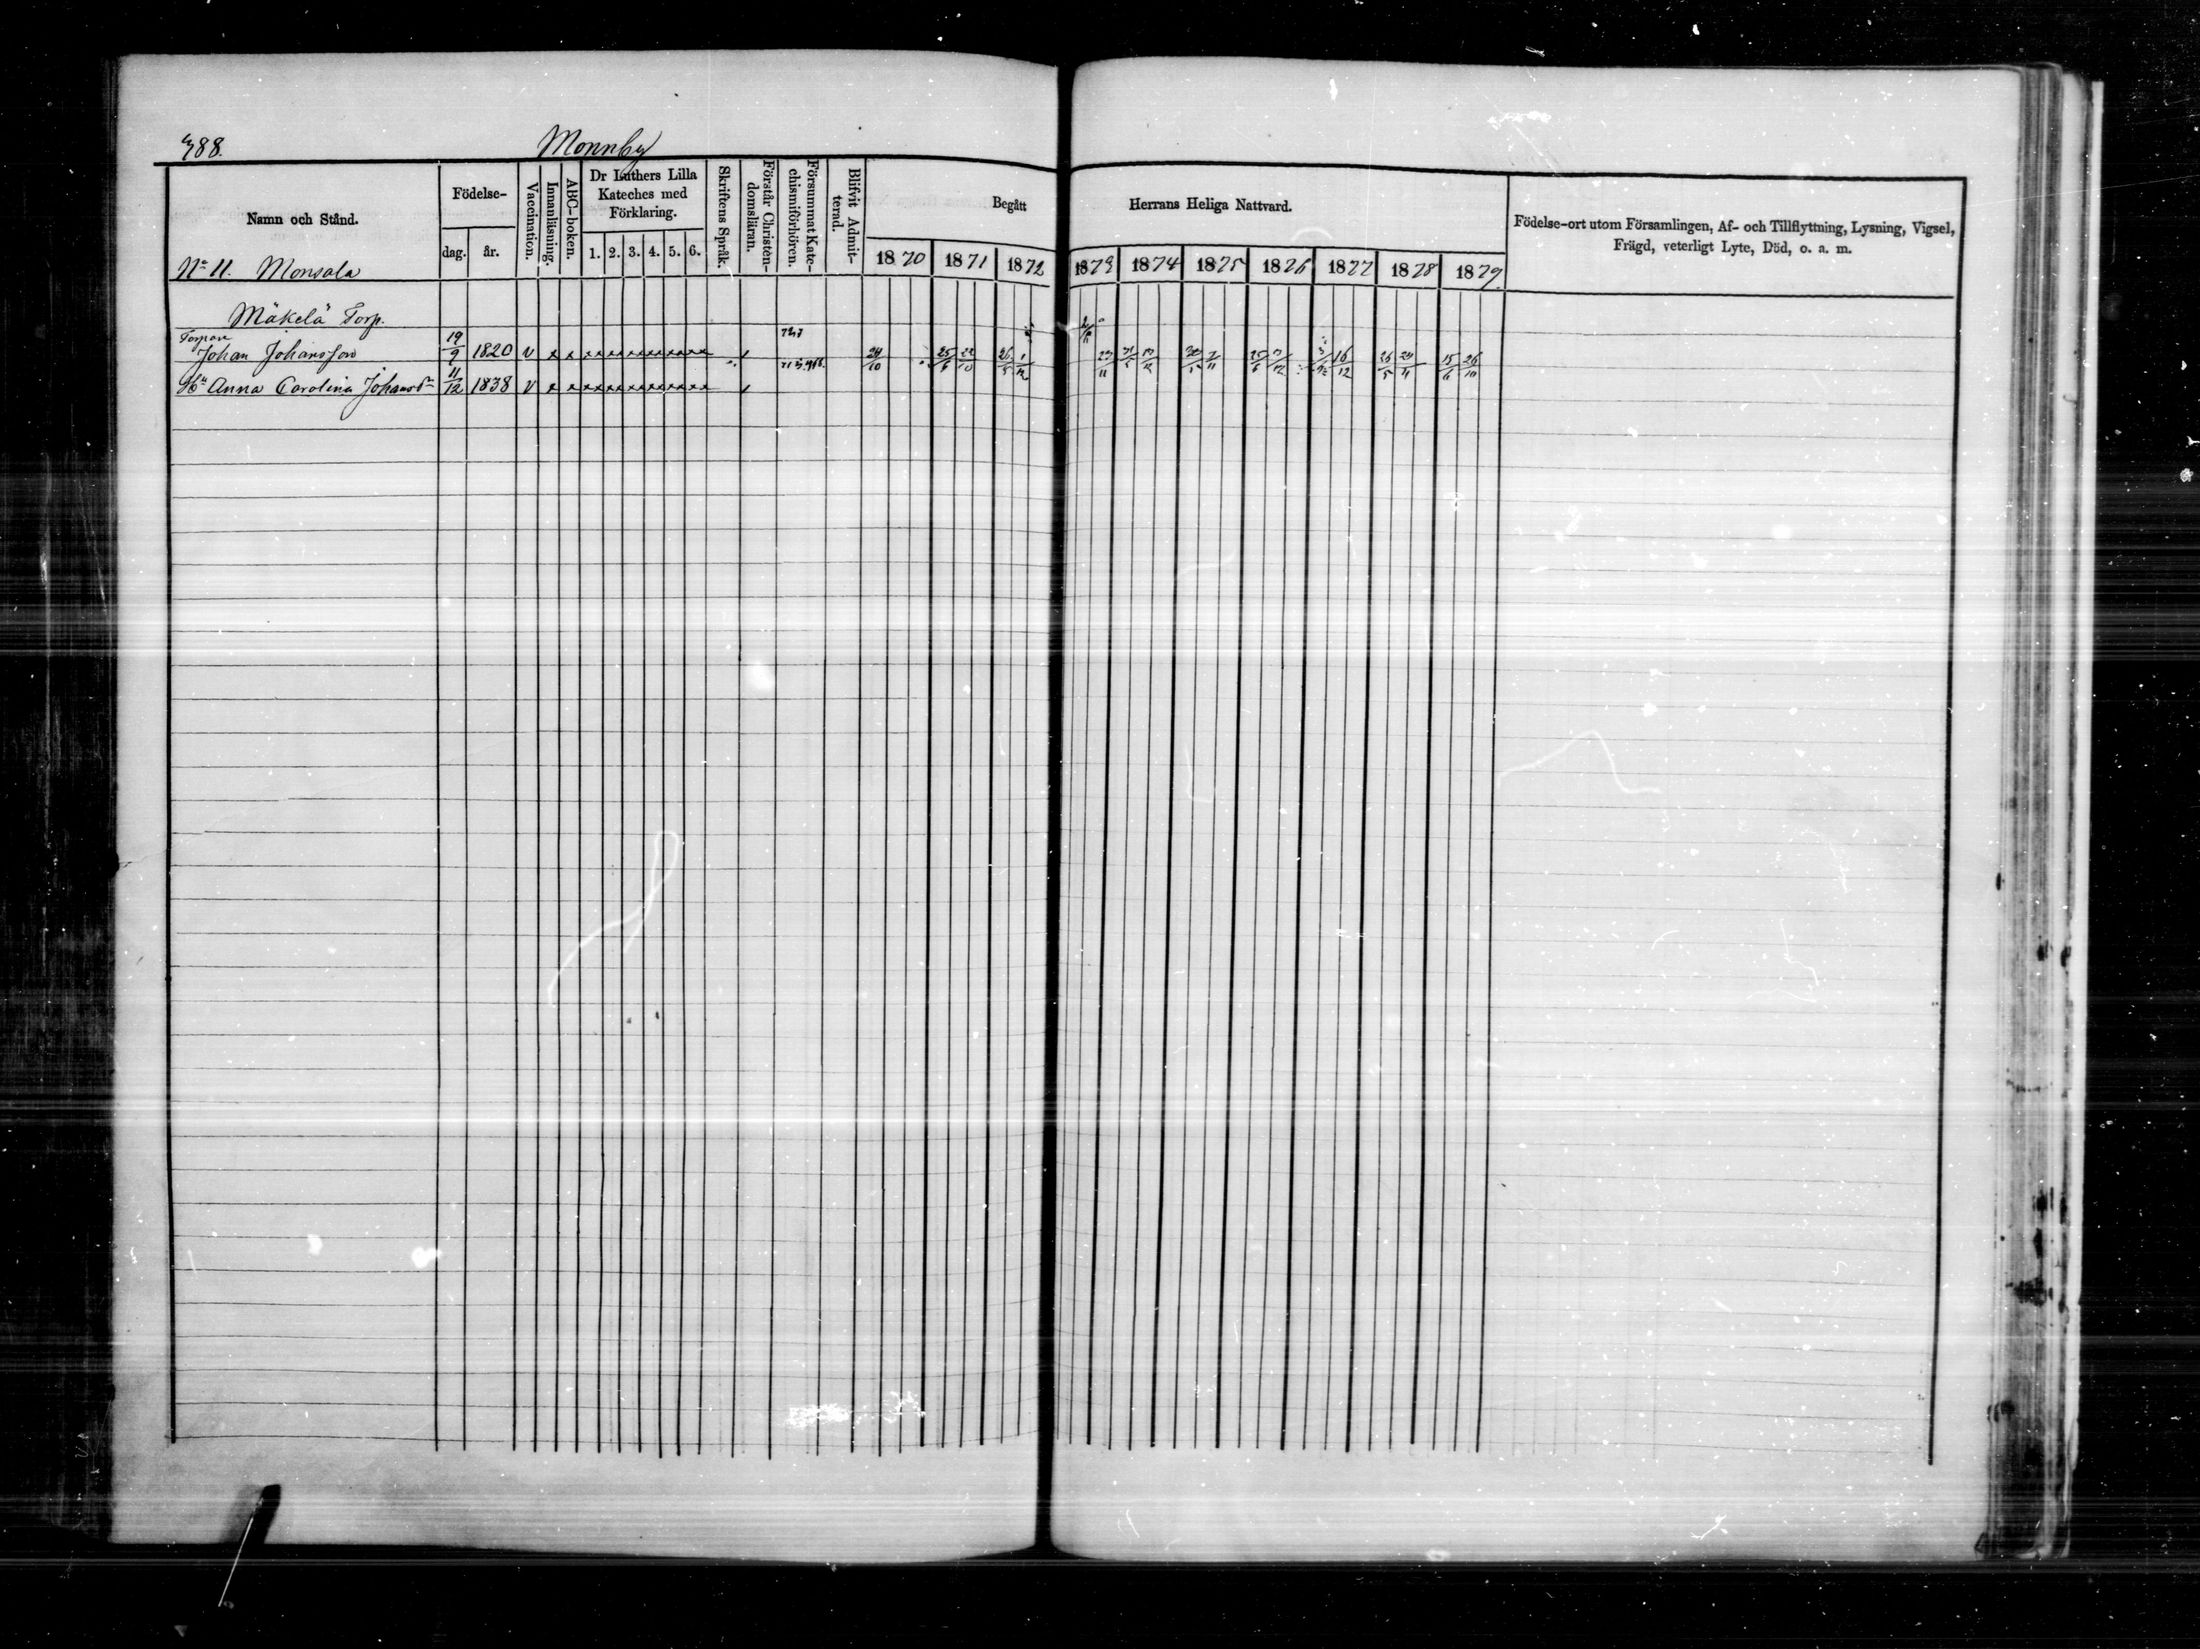 388.
Monnby
Namn och Stånd.
Födelse-
dag.
år.
Vaccination.
Innanläsning.
ABC-boken.
Dr Luthers Lilla
Kateches med
Förklaring.
1. 2. 3. 4. 5. 6.
Skriftens Språk.
Förstår Christen-
domsläran.
Försummat Kate-
chismiförhören.
Blifvit Admit-
terad.
Begått
Herrans Heliga Nattvard.
1870 1871 1872 1873 1874 1875 1876 1877 1878 1879
Födelse-ort utom Församlingen, Af- och Tillflyttning, Lysning, Vigsel,
Frägd, veterligt Lyte, Död, o. a. m.
No 11. Monsala
Mäkelä Torp.
Torpare
Johan Johansson 19/9 1820 v x x
Hu Anna Carolina Johansdr 11/12 1838 v x x
24/10 25/6 22/10 26/5 1/12 23/11 16/12 26/5 24/11 15/6 26/10